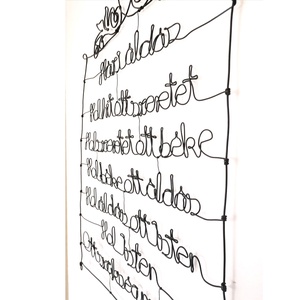 Házi áldás
Hol hit ott szeretet
Hol szeretet ott béke
Hol béke ott áldás
Hol áldás ott Isten
Hol Isten
Ott